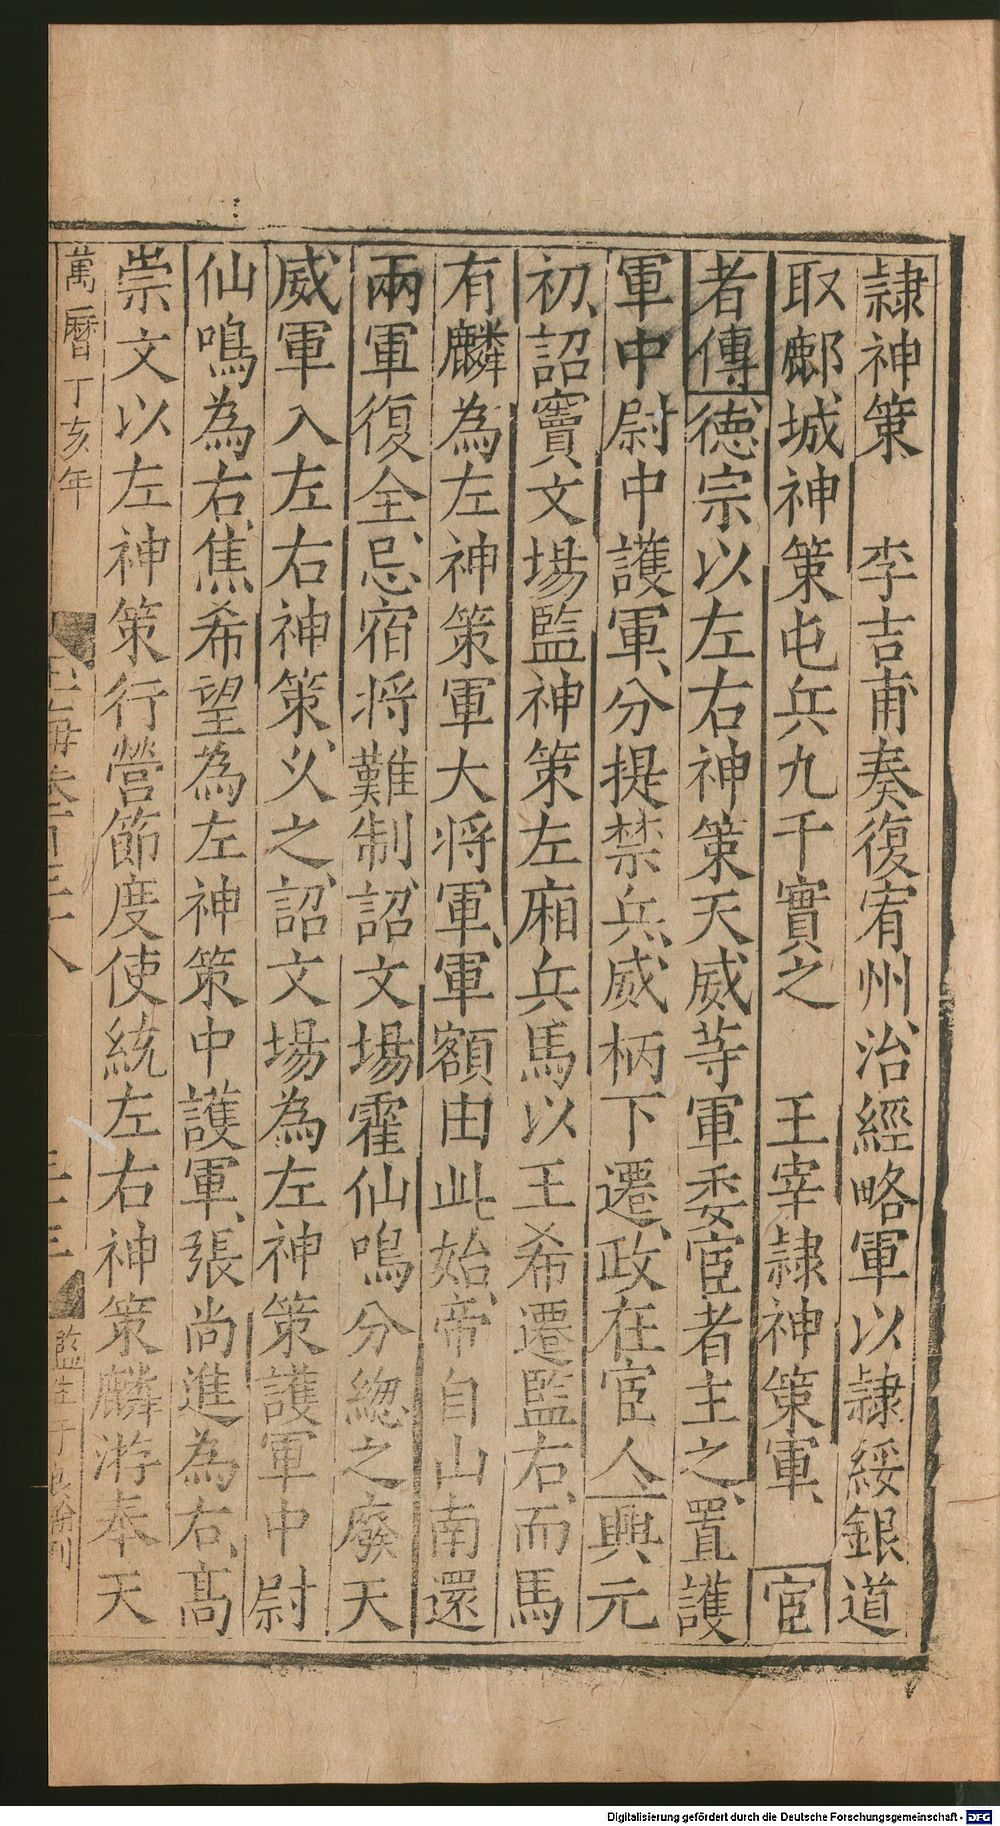 隸神策　李吉甫奏復宥州治經略軍以隸綏銀道
取鄜城神策屯兵九千實之　王宰隸神策軍　宦
者傳德宗以左右神策天威等軍委宦者主之置護
軍中尉中護軍分提禁兵威柄下遷政在宦人興元
初詔竇文場監神策左廂兵馬以王希遷監右而馬
有麟為左神策軍大将軍軍額由此始帝自山南還
兩軍復全忌宿将難制詔文場霍仙鳴分總之廢天
威軍入左右神策乂之詔文場為左神策護軍中尉
仙鳴為右焦希望為左神策中護軍張尚進為右高
崇文以左神策行營節度使統左右神策麟游奉天
萬曆丁亥年
玉海卷百三十八
二十三
監生于良翰刊
Digitalisierung gefördert durch die Deutsche Forschungsgemeinschaft - DFG